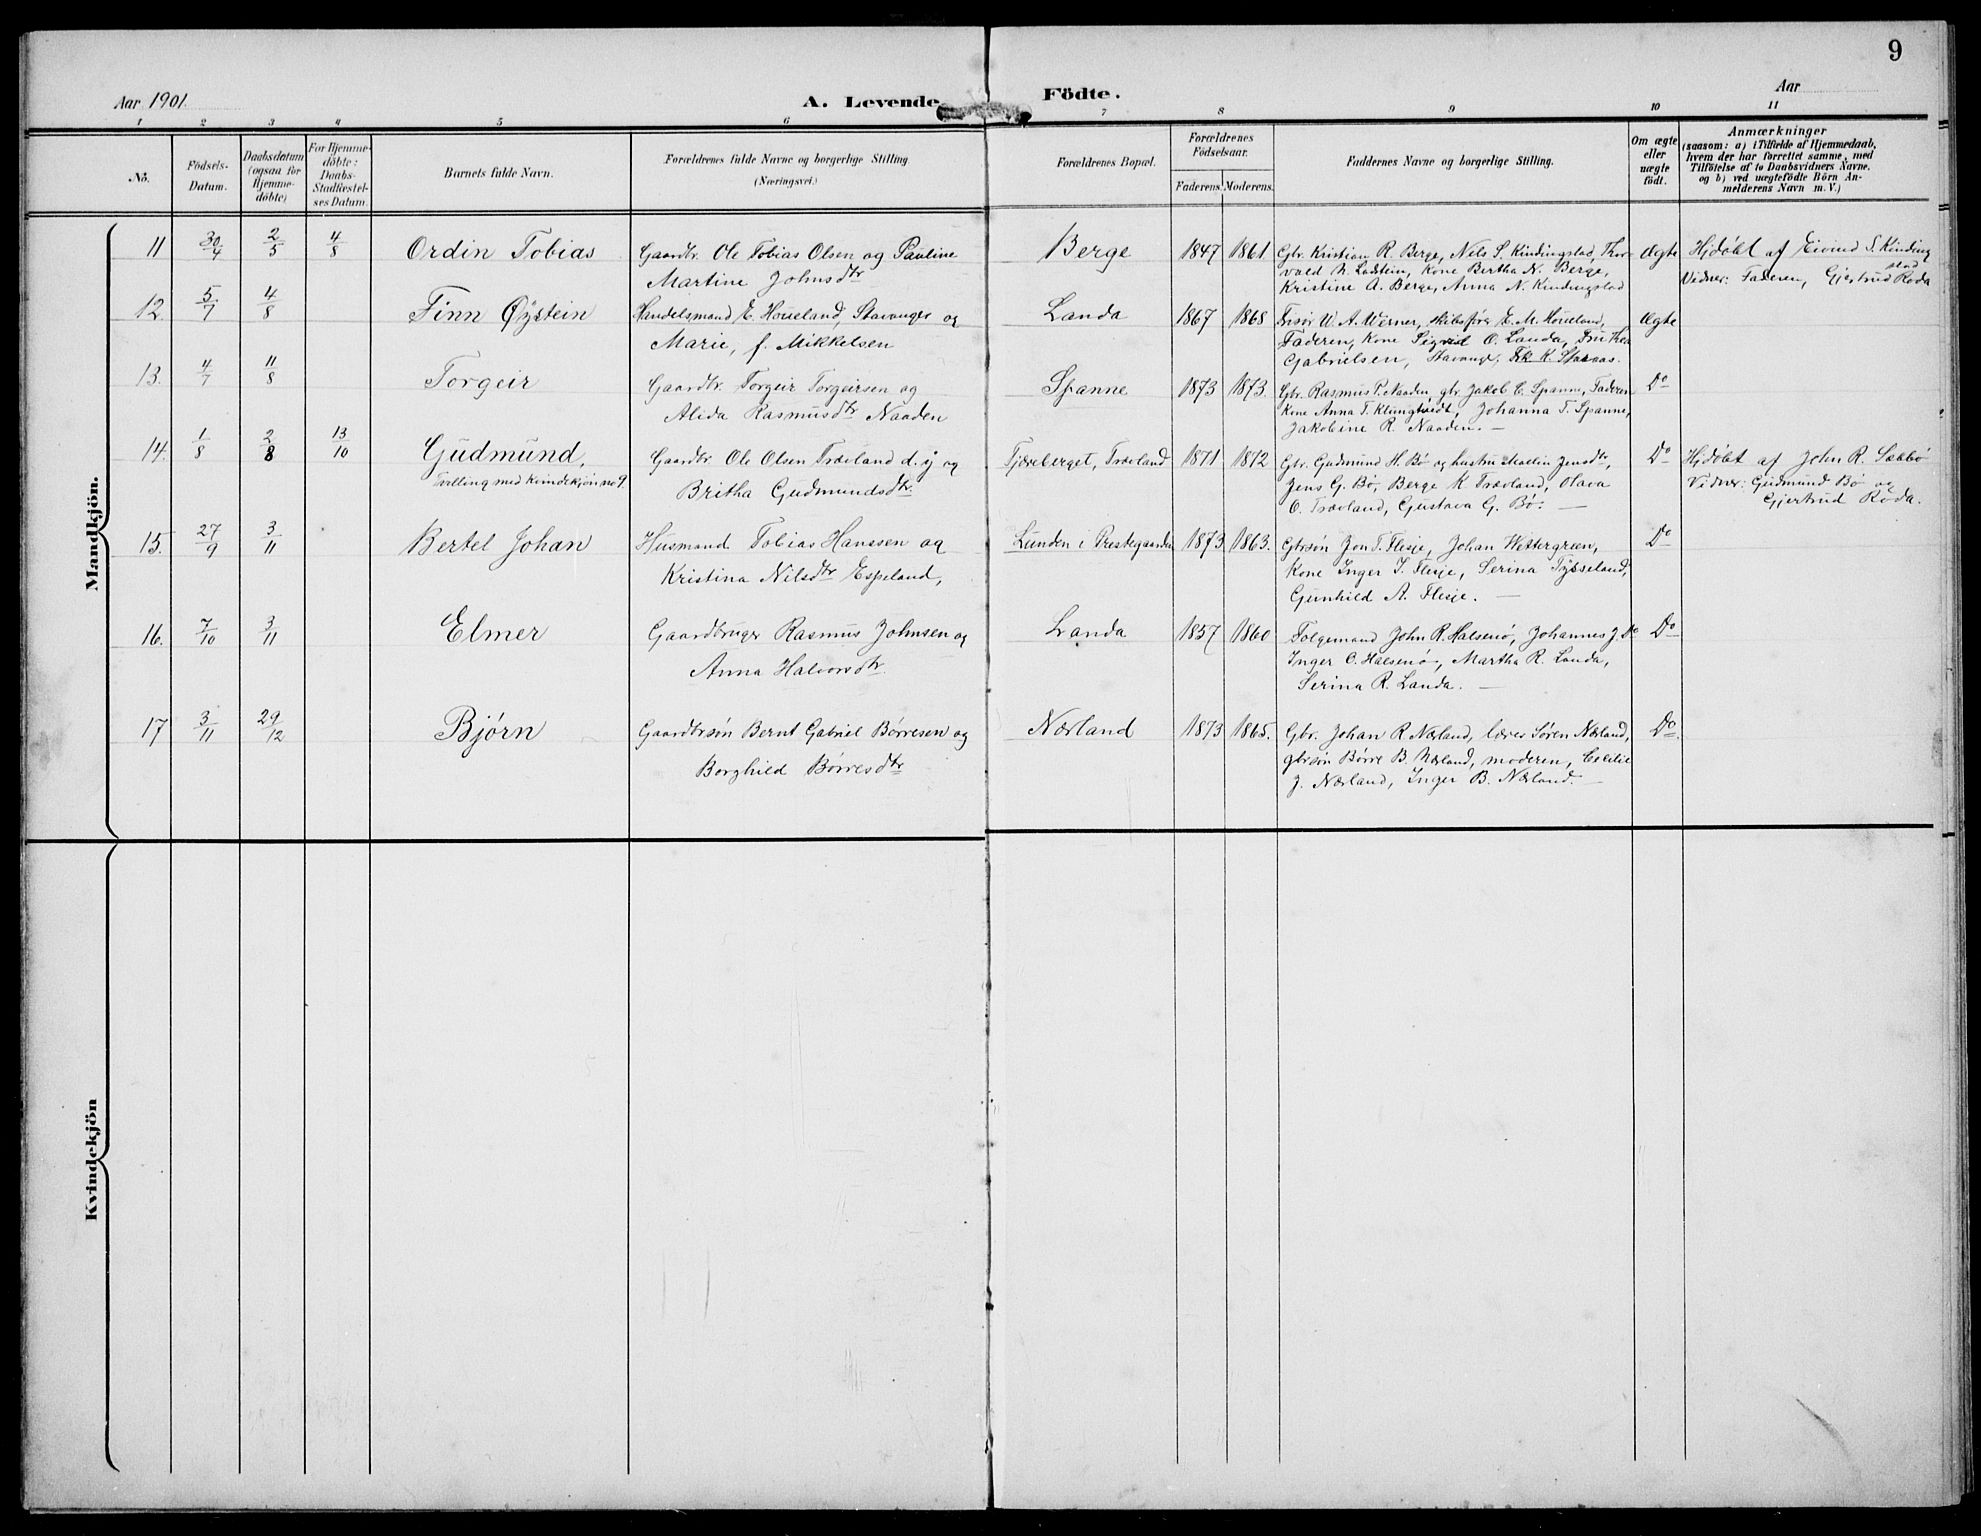 9
Aar 1901.
A. Levende
Födte.
Aar
1 2 3 4 5 6 7 8 9 10 11
No.
Födsels-
Datum.
Daabsdatum
(ogsaa for
Hjemme-
döbte)
For Hjemme-
döbte:
Daabs-
Stadfæstel-
ses Datum.
Barnets fulde Navn.
Forældrenes fulde Navne og borgerlige Stilling
(Næringsvei.)
Forældrenes Bopæl.
Forældrenes
Födselsaar.
Faderens. Moderens.
Faddernes Navne og borgerlige Stilling.
Om ægte
eller
uægte
födt.
Anmærkninger
(saasom: a) i Tilfælde af Hjemmedaab,
hvem der har forrettet samme, med
Tilföielse af to Daabsvidners Navne.
og b) ved uægtefödte Börn An-
melderens Navn m. V.)
Mandkjön.
11 30/4 2/5 4/8 Ordin Tobias Gaardbr. Ole Tobias Olsen og Pauline
Martine Johnsdtr
Berge 1847 1861 Gbr. Kristian R. Berge, Nels S. Kindingstad, Thor-
vald N. Ladstein, Kone Bertha N. Berge,
Kristine A. Berge, Anna N. Kindingstad
Ægte Hjdöbt af Eivind S. Kinding
stad
Vidner: Faderen, Gjertrud Roda
12 5/7 4/8 Finn Öystein Handelsmand E. Houeland, Stavanger og
Marie, f. Mikkelsen
Landa 1867 1868 W. A. Werner, skibsfører E. M. Houeland,
Faderen, Kone Sigrid O. Landa, Fru Thea
Gabrielsen, Stavanger,
Ægte
13. 4/7 11/8 Torgeir Gaardbr. Torgeir Torgeirsen og
Alida Rasmusdtr Naaden
Spanne 1873 1873. Gbr. Rasmus T. Naaden, gbr Jakob E. Spanne, Faderen
Kone Anna T. Klungtvedt, Johanna T. Spanne,
Jakobine R. Naaden. —
Do
14. 1/8 2/8 13/10 Gudmund,
Tvilling med Kvindekjön no 9.
Gaardbr. Ole Olsen Trævland d.y og
Britha Gudmundsdtr.
Tjæreberget, Trævland 1871 1872 Gbr. Gudmund H. Bø og hustru Malin Jensdtr,
Jens G. Bø, Berge K Trævland, Olava
O. Trævland, Gustava G. Bø. —
Do Hjdöbt af John R. Sæbbø
Vidner: Gudmund Bø og
Gjertrud Roda.
15. 27/9 3/11 Bertel Johan Husmand Tobias Hanssen og
Kristina Nilsdtr Espeland,
Lunden i Prestegaarden 1873 1863. Gbrsøn Jon T. Flesje, Johan Wettergreen,
Kone Inger J. Flesje, Serina Tysseland,
Gunhild A. Flesje. —
Do
16. 7/10 3/11 Elmer Gaardbruger Rasmus Johnsen og
Anna Halvorsdtr.
Landa 1857 1860 Folgemand John R. Halsenø, Johannes J. Do
Inger O. Halsenø, Martha R. Landa,
Serina R. Landa. —
Do
17 3/11 29/12 Bjørn Gaardbrsøn Bernt Gabriel Børresen og
Borghild Børresdtr
Nærland 1873 1865. Gbr. Johan R Nærland, lærer Søren Nærland,
gbrsøn Børre B. Nærland, moderen, Cecilie
J. Nærland, Inger B. Nærland. —
Do.
Kvindekjön